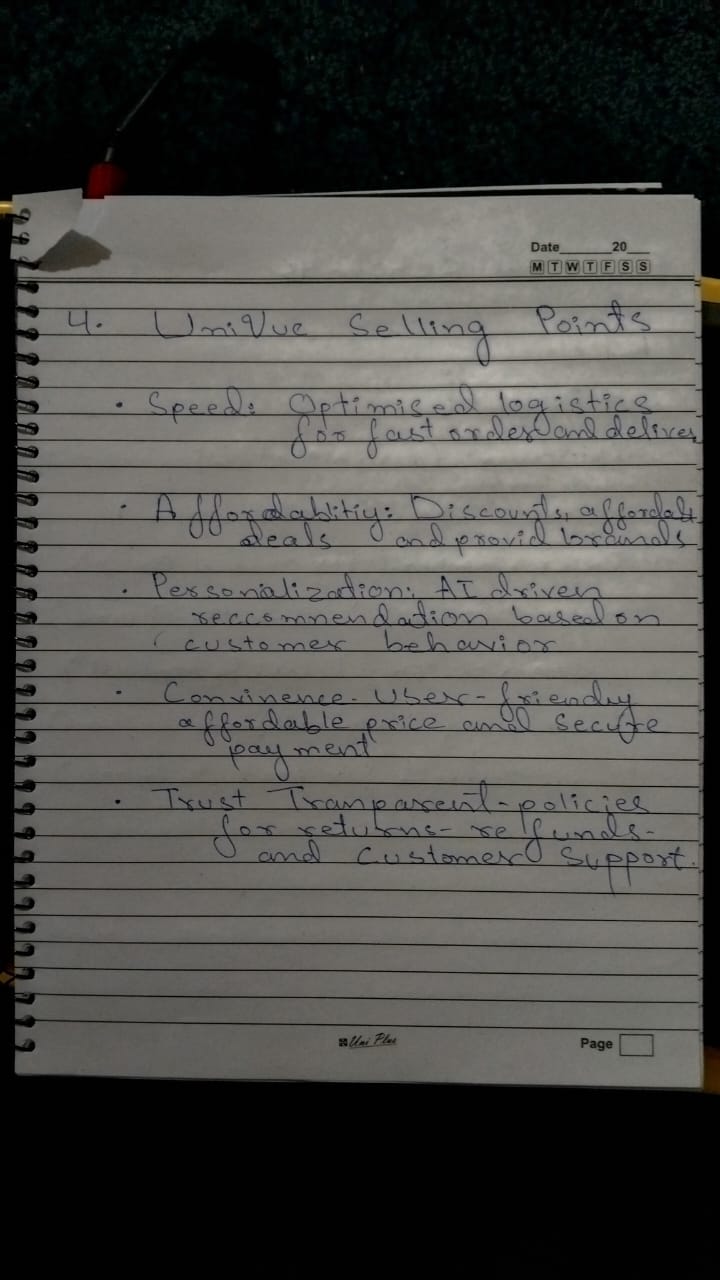 Date 20
M T W T F S S
4. UniVue Selling Points
• Speed: Optimised logistics
for fast order and deliver
• Affordablitiy: Discounts, affordabl
deals and provid brands
• Personalization: AI driven
reccomnendation based on
customer behavior
• Convinence - User-friendly
affordable price and secure
payment
• Trust Tranparent-policies
for returns- refunds-
and Customer Support.
Uni Plus
Page